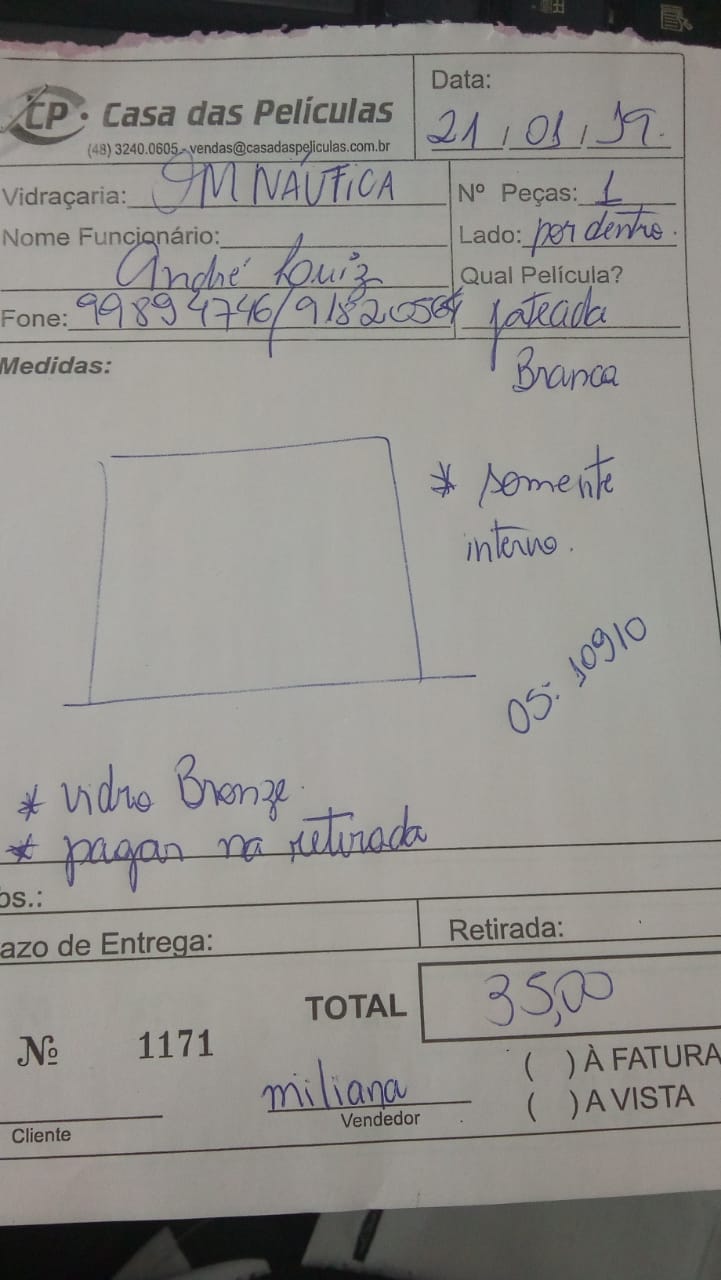 CP • Casa das Películas
(48) 3240.0605 - vendas@casadaspeliculas.com.br
Data:
21 / 01 / 19.
Vidraçaria: JM NÁUTICA
Nº Peças: 1
Nome Funcionário:
André Luiz
Lado: por dentro.
Qual Película?
Fone: 99894746/91820564
jateada
Branca
Medidas:
* somente
interno.
OS: 10910
* vidro Bronze.
* pagar na retirada
bs.:
azo de Entrega:
Retirada:
TOTAL 35,00
Nº 1171
( ) À FATURA
miliana
( ) A VISTA
Vendedor
Cliente